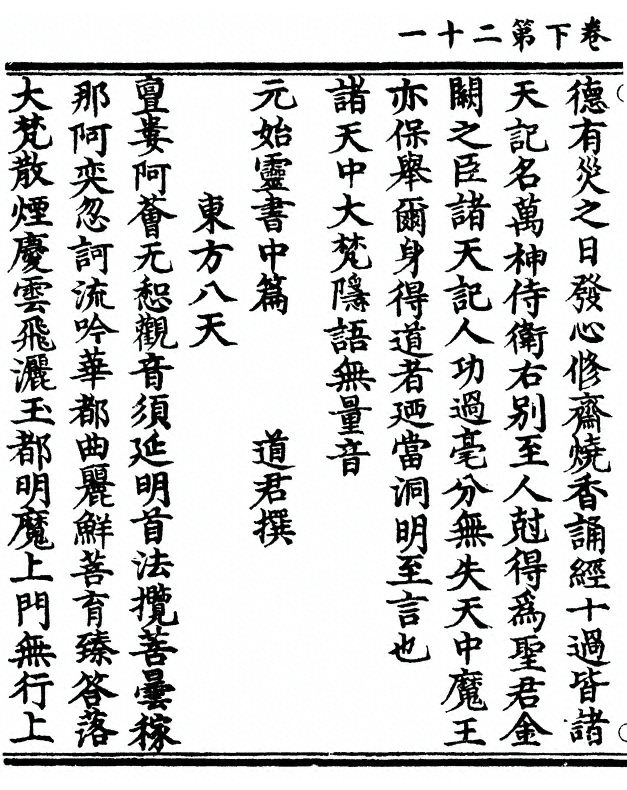 卷下第二十一
德有災之日發心修齋燒香誦經十過皆諸
天記名萬神侍衛右別至人尅得爲聖君金
闕之臣諸天記人功過毫分無失天中魔王
亦保舉爾身得道者廼當洞明至言也
諸天中大梵隱語無量音
元始靈書中篇　　　道君撰
東方八天
亶婁阿薈无惒觀音須延明首法攬菩曇稼
那阿奕忽訶流吟華都曲麗鮮菩育臻答落
大梵散煙慶雲飛灑玉都明魔上門無行上